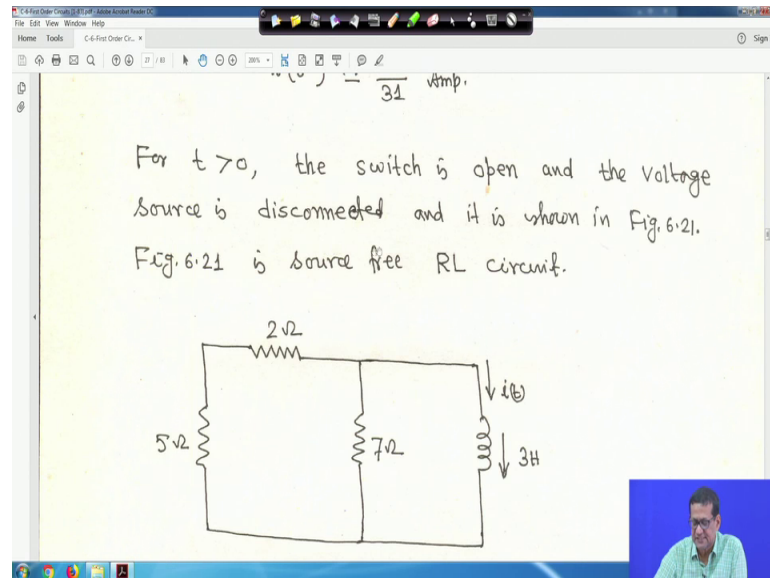 C-6-First Order Circuits [1-83].pdf - Adobe Acrobat Reader DC
File Edit View Window Help
Home Tools C-6-First Order Cir... × Sign
27 / 83 200%
31 Amp.
For t >0, the switch is open and the voltage
source is disconnected and it is shown in Fig. 6.21.
Fig. 6.21 is source free RL circuit.
2Ω
i(t)
5Ω 7Ω 3H